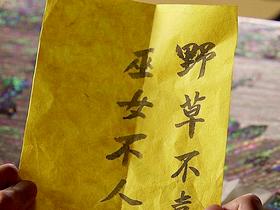 野草不
巫女不人